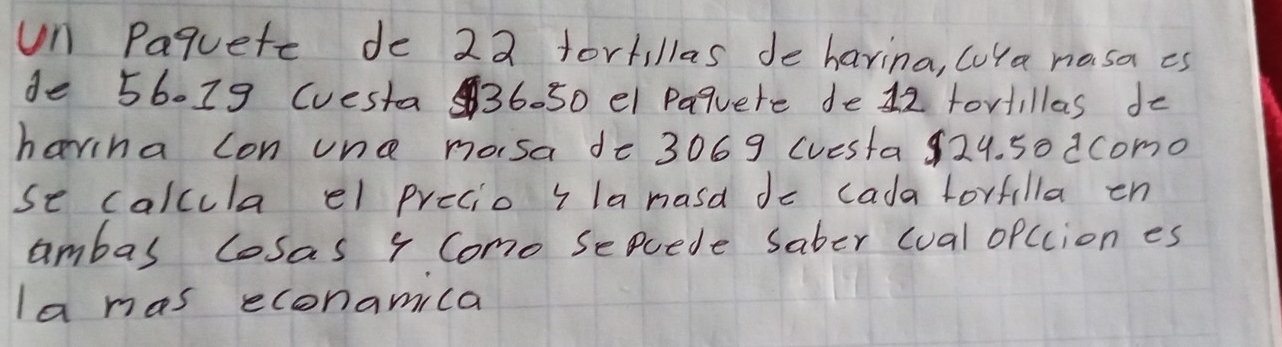 Un Paquete de 22 tortillas de harina, cuya masa es
de 56.1g cuesta $36.50 el paquete de 12 tortillas de
harina con una masa de 306g cuesta $24.50 ¿como
se calcula el precio y la masa de cada tortilla en
ambas cosas y como se puede saber cual opccion es
la mas econamica